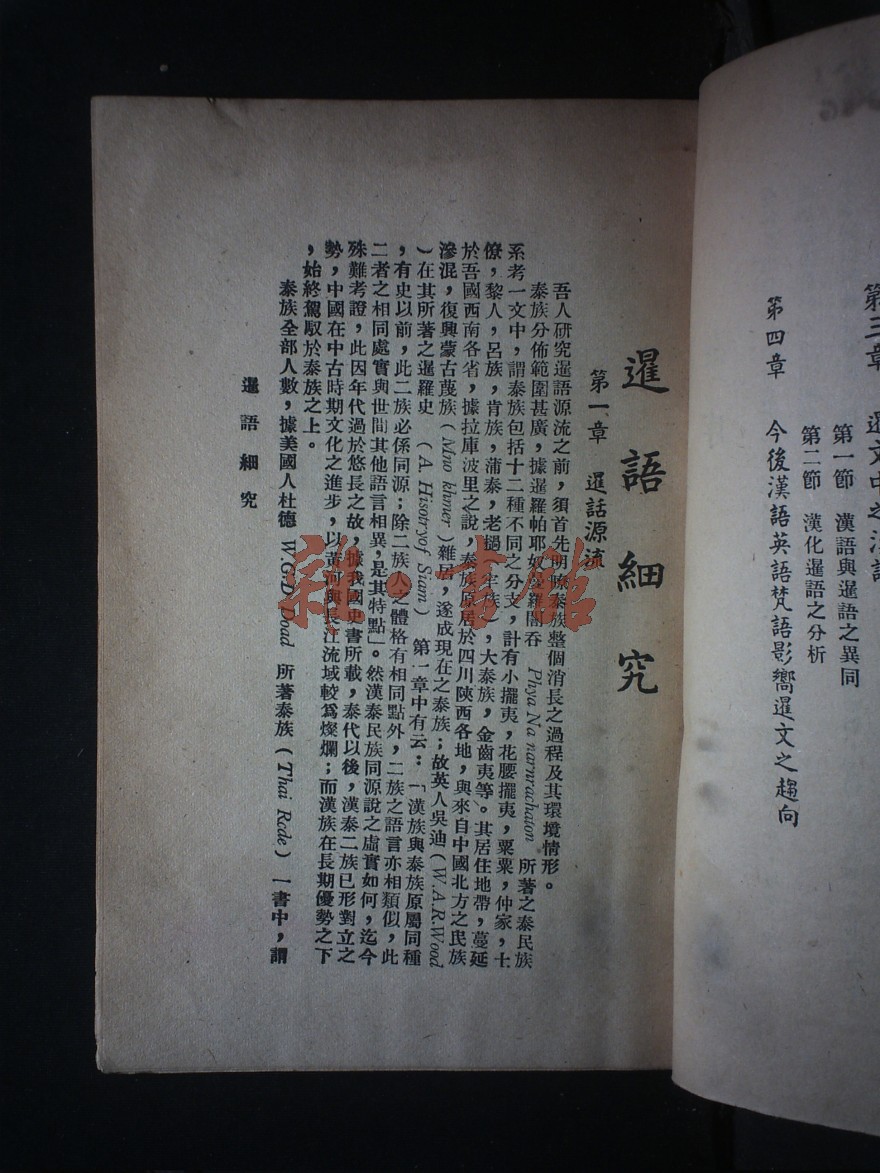 第三章 暹文中之漢語
第一節 漢語與暹語之異同
第二節 漢化暹語之分析
第四章 今後漢語英語梵語影嚮暹文之趨向
暹語細究
第一章 暹話源流
吾人研究暹語源流之前，須首先明瞭泰族整個消長之過程及其環境情形。
泰族分佈範圍甚廣，據暹羅帕耶奴曼羅闍吞 Phya Na narnráchaton 所著之泰民族
系考一文中，謂泰族包括十二種不同之分支，計有小擺夷，花腰擺夷，粟粟，仲家，土
僚，黎人，呂族，肯族，蒲泰，老撾（牢族），大泰族，金齒夷等。其居住地帶，蔓延
於吾國西南各省，據拉庫波里之說，泰族原居於四川陝西各地，與來自中國北方之民族
滲混，復興蒙古蔑族（Mno khmer）雜居，遂成現在之泰族；故英人吳迪（W.A.R.Wood
）在其所著之暹羅史（A. Hisotryof Siam）第一章中有云：「漢族與泰族原屬同種
，有史以前，此二族必係同源；除二族人之體格有相同點外，二族之語言亦相類似，此
二者之相同處實與世間其他語言相異，是其特點」。然漢泰民族同源說之虛實如何，迄今
殊難考證，此因年代過於悠長之故，據我國史書所載，秦代以後，漢泰二族已形對立之
勢，中國在中古時期文化之進步，以黃河與長江流域較爲燦爛；而漢族在長期優勢之下
，始終駕馭於泰族之上。
泰族全部人數，據美國人杜德 W.G.D Doad 所著泰族（Thai Rcde）一書中，謂
暹語細究
雜·書館